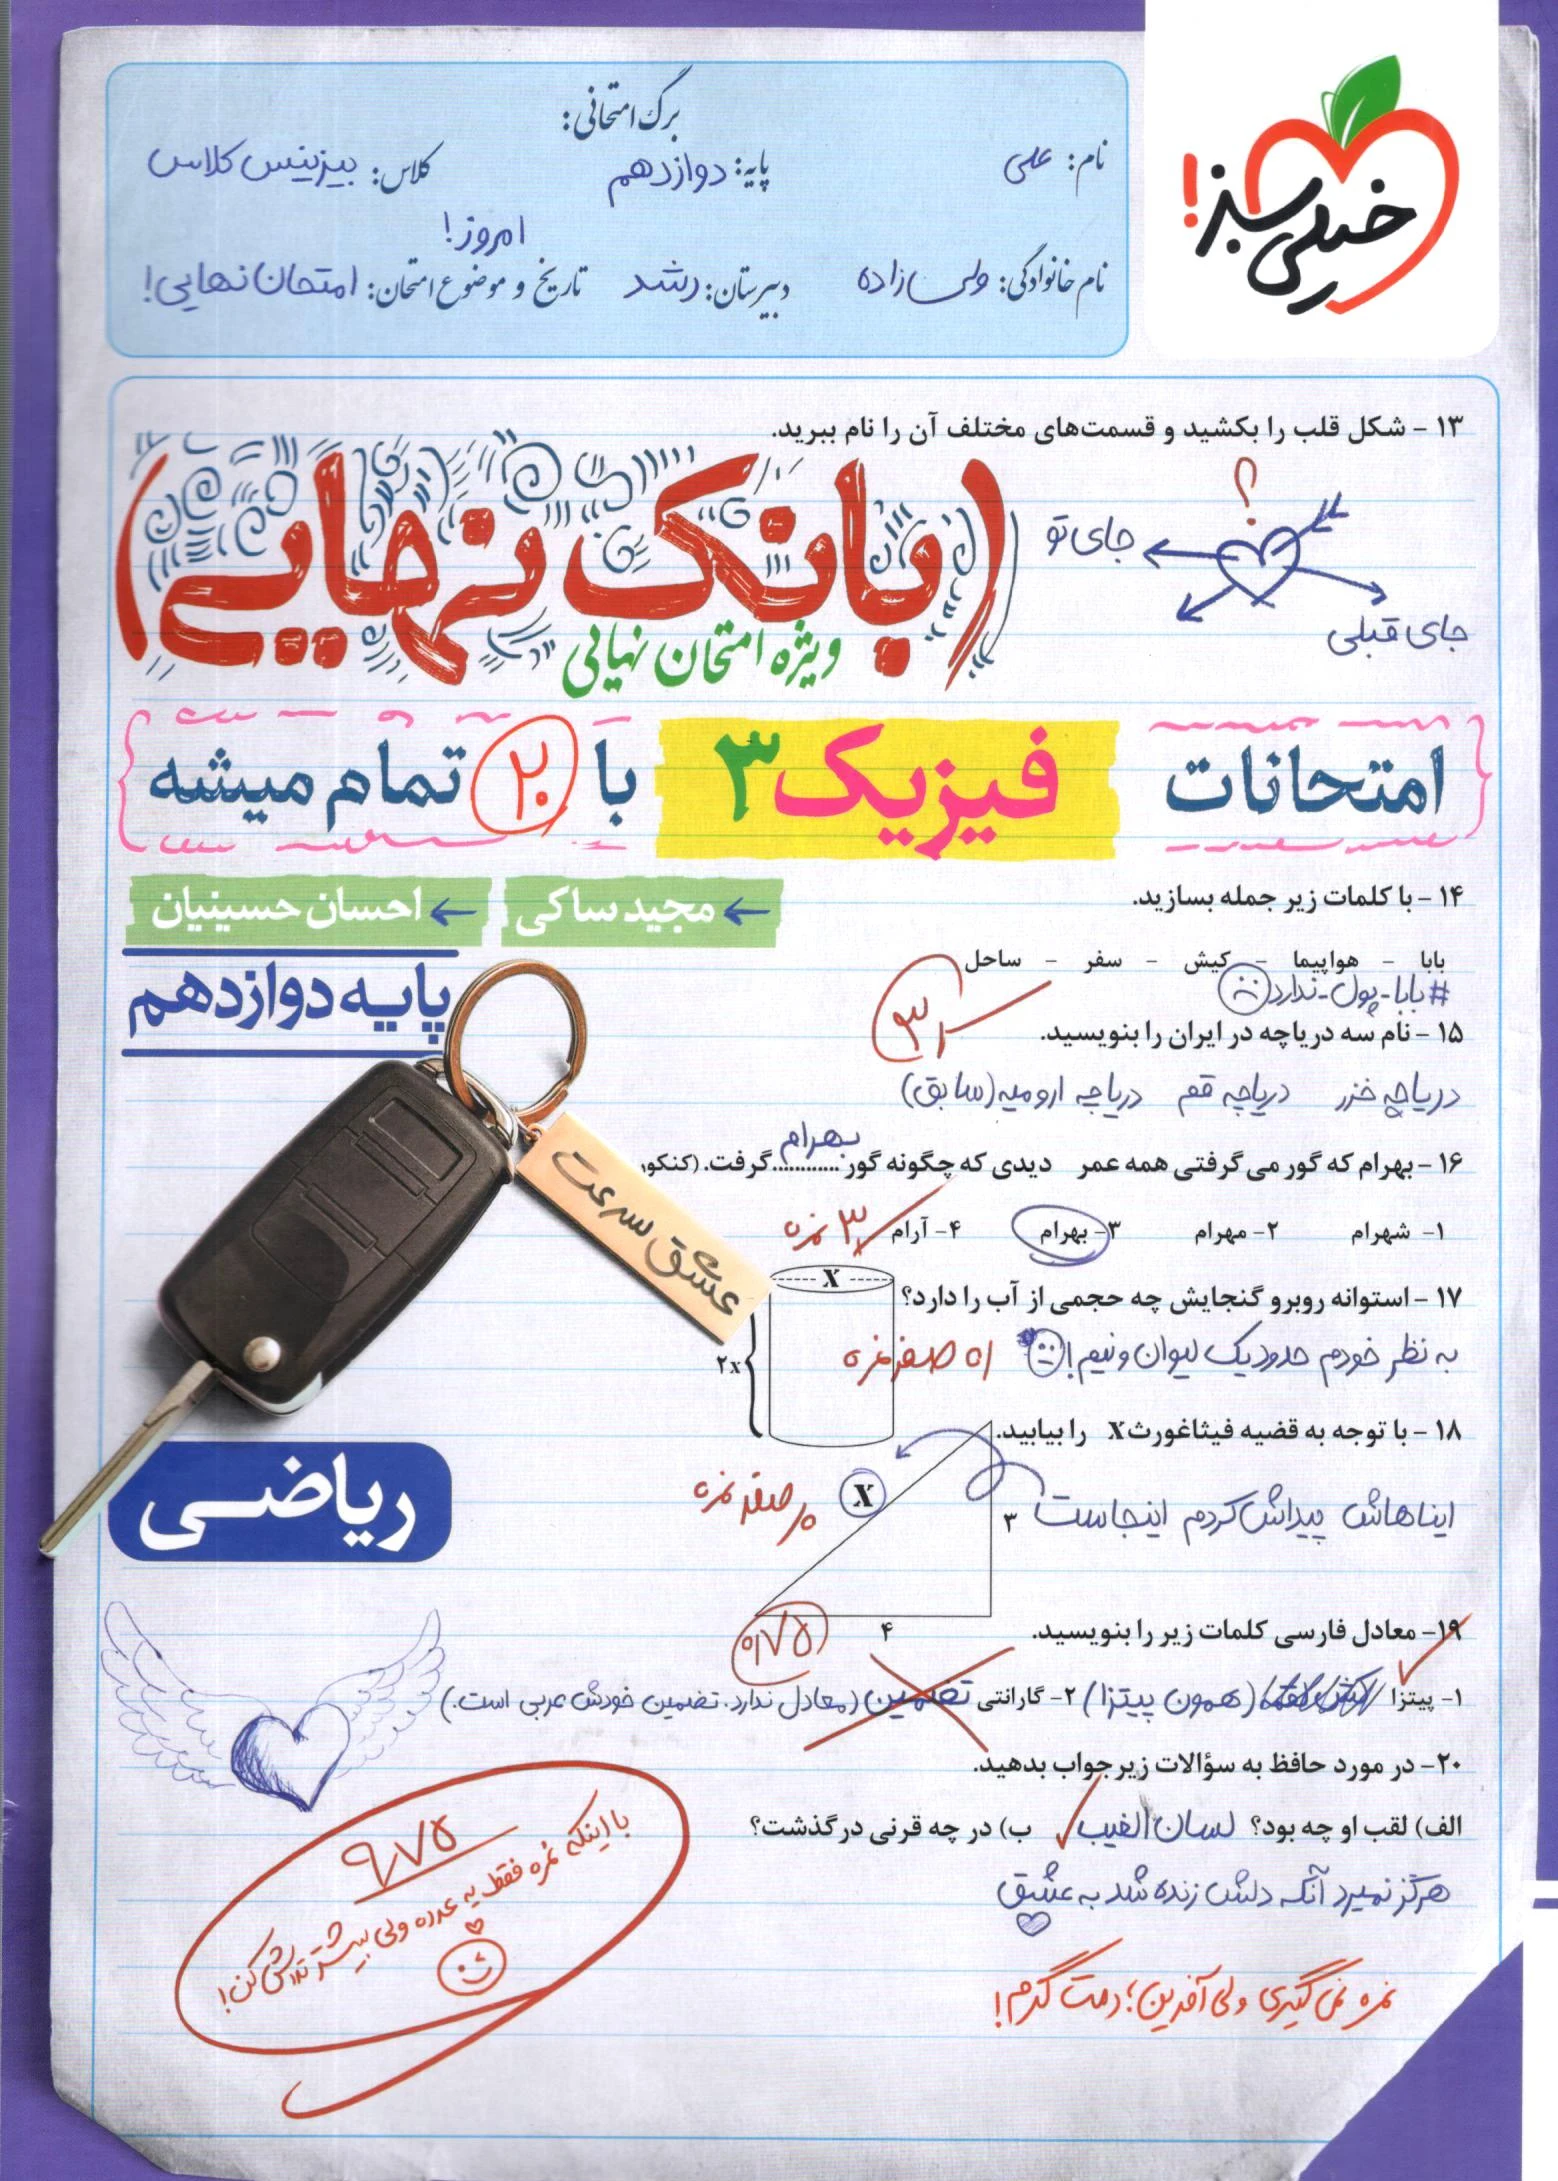 خیلی سبز!
برگ امتحانی:
نام: علی
پایه: دوازدهم
کلاس: بیزینس کلاس
نام خانوادگی: ولی‌زاده
دبیرستان: رشد
تاریخ و موضوع امتحان: امروز! امتحان نهایی!
۱۳ - شکل قلب را بکشید و قسمت‌های مختلف آن را نام ببرید.
؟
جای تو
جای قبلی
(بانک نهایی)
ویژه امتحان نهایی
امتحانات فیزیک ۳ با ۲۰ تمام میشه
مجید ساکی
احسان حسینیان
پایه دوازدهم
۱۴ - با کلمات زیر جمله بسازید.
بابا - هواپیما - کیش - سفر - ساحل
#بابا-پول-ندارد
۱۵ - نام سه دریاچه در ایران را بنویسید.
دریاچه خزر دریاچه قم دریاچه ارومیه (سابق)
۱۶ - بهرام که گور می گرفتی همه عمر دیدی که چگونه گور ............ گرفت. (کنکور
بهرام
۱- شهرام ۲- مهرام ۳- بهرام ۴- آرام
۳ نمره
عشق سرعت
۱۷ - استوانه روبرو گنجایش چه حجمی از آب را دارد؟
X
۲x
به نظر خودم حدود یک لیوان و نیم!
صفر نمره
۱۸ - با توجه به قضیه فیثاغورث X را بیابید.
ایناهاش پیداش کردم اینجاست
X
۳
۴
صفر نمره
ریاضی
۱۹- معادل فارسی کلمات زیر را بنویسید.
۰/۷۵
۱- پیتزا (همون پیتزا) ۲- گارانتی تضمین (معادل ندارد. تضمین خودش عربی است.)
۲۰- در مورد حافظ به سؤالات زیر جواب بدهید.
الف) لقب او چه بود؟ لسان الغیب ب) در چه قرنی درگذشت؟
هرگز نمیرد آنکه دلش زنده شد به عشق
نمره نمی گیری ولی آفرین؛ دمت گرم!
۹/۷۵
با اینکه نمره فقط یه عدده ولی بیشتر تلاش کن!